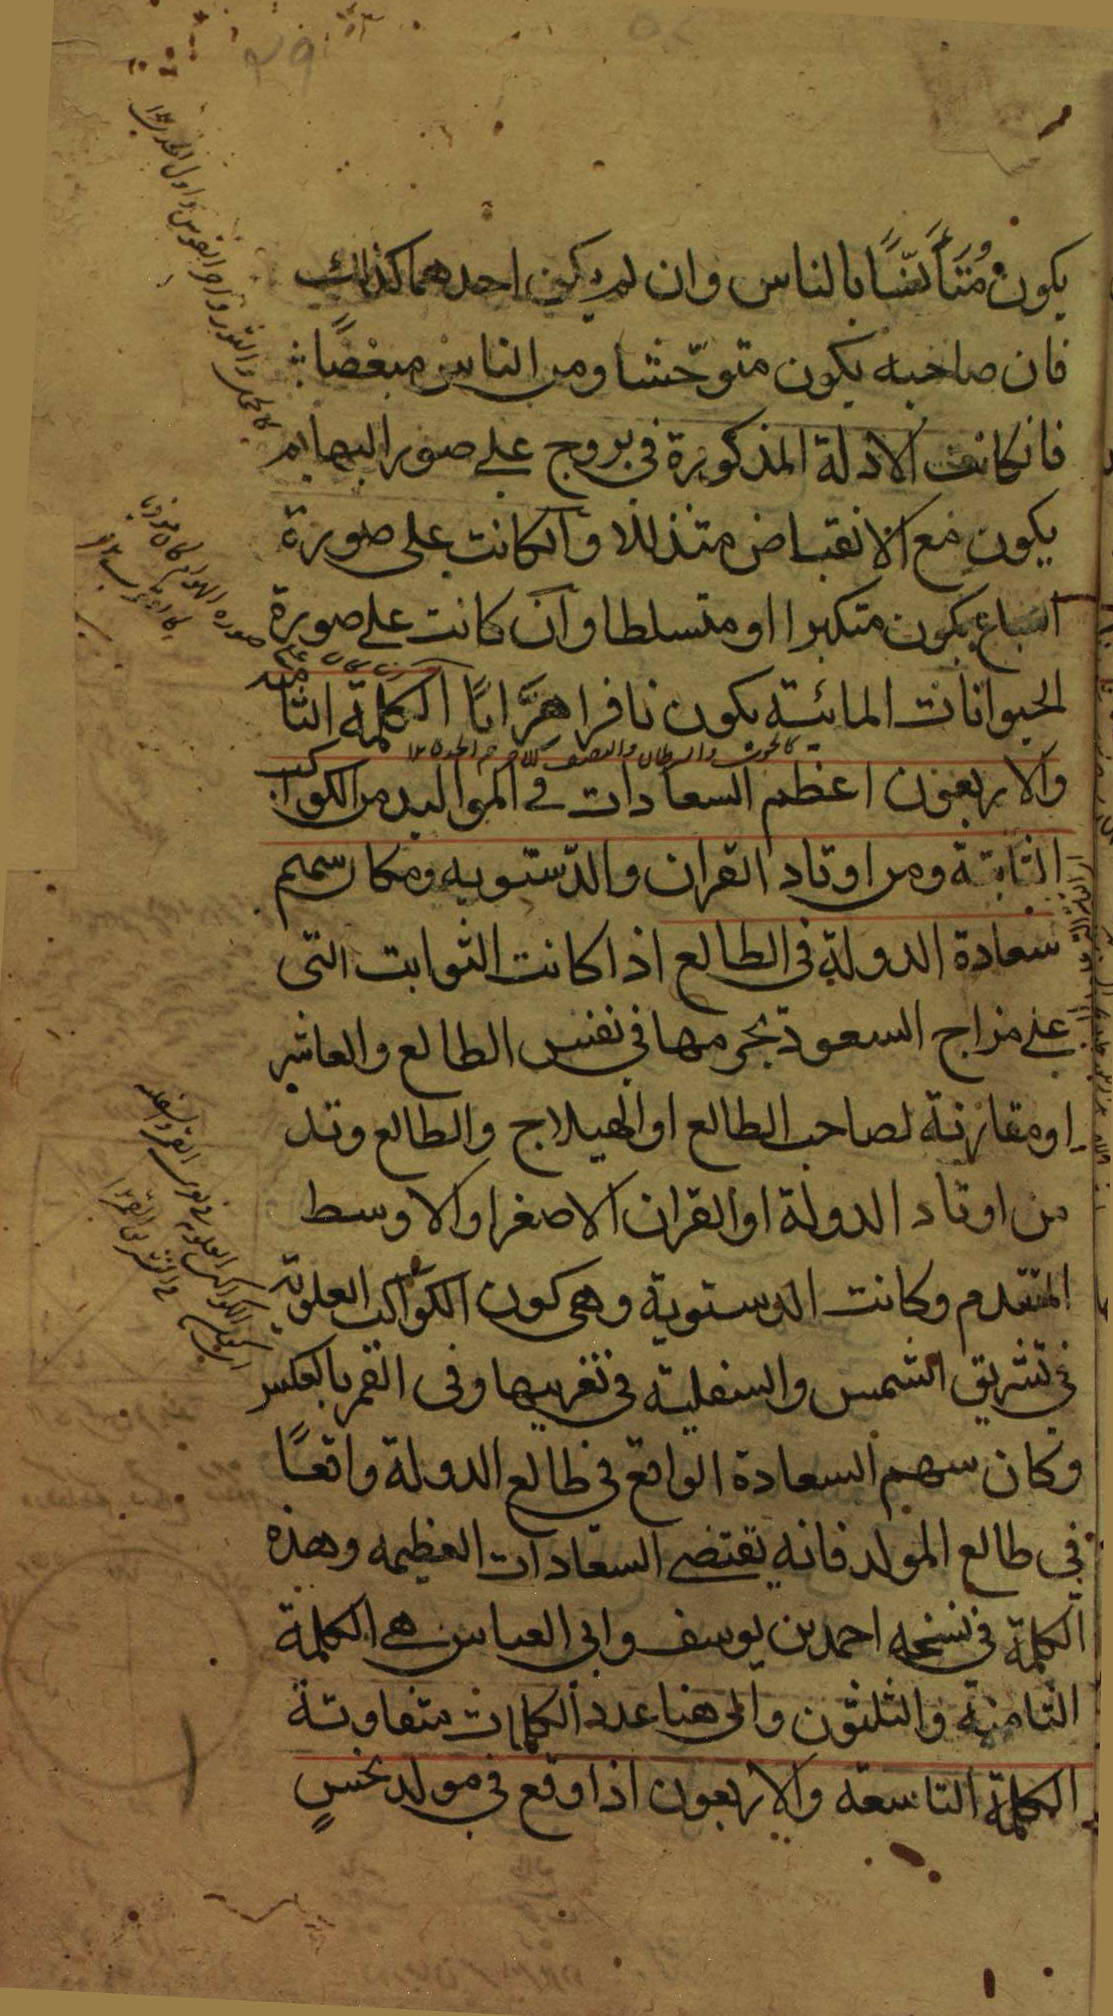 يكون مُتَأَنِّسًا بالناس وان لم يكن احدهما كذلك
فان صاحبه يكون متوحّشا ومن الناس مبغضًا
فان كانت الادلة المذكورة في بروج على صور البهايم
يكون مع الانقباض متذللا وان كانت على صورة
السباع يكون متكبرا او متسلطا وان كانت على صورة
الحيوانات المائية يكون نافرا هرّابا الكلمة الثامنة
كالحوت والسرطان والنصف الاخر من الجدي ١٢
والاربعون اعظم السعادات في المواليد من الكواكب
الثابتة ومن اوتاد القران والدّستوية ومكان سهم
سعادة الدولة في الطالع اذا كانت الثوابت التي
على مزاج السعود بجرمها في نفس الطالع والعاشر
او مقارنة لصاحب الطالع او الهيلاج والطالع وتد
من اوتاد الدولة او القران الاصغر او الاوسط
المتقدم وكانت الدستوية وهي كون الكواكب العلوية
في تشريق الشمس والسفلية في تغريبها وفي القمر بالعكس
وكان سهم السعادة الواقع في طالع الدولة واقعًا
في طالع المولد فانه يقتضى السعادات العظيمه وهذه
الكلمة في نسخه احمد بن يوسف وابي العباس هي الكلمة
الثامنية والثلثون والى هنا عدد الكلمات متفاوتة
الكلمة التاسعة والاربعون اذا وقع في مولد نحسٍ
كالحمل والثور واخر القوس واول الجدي ١٢